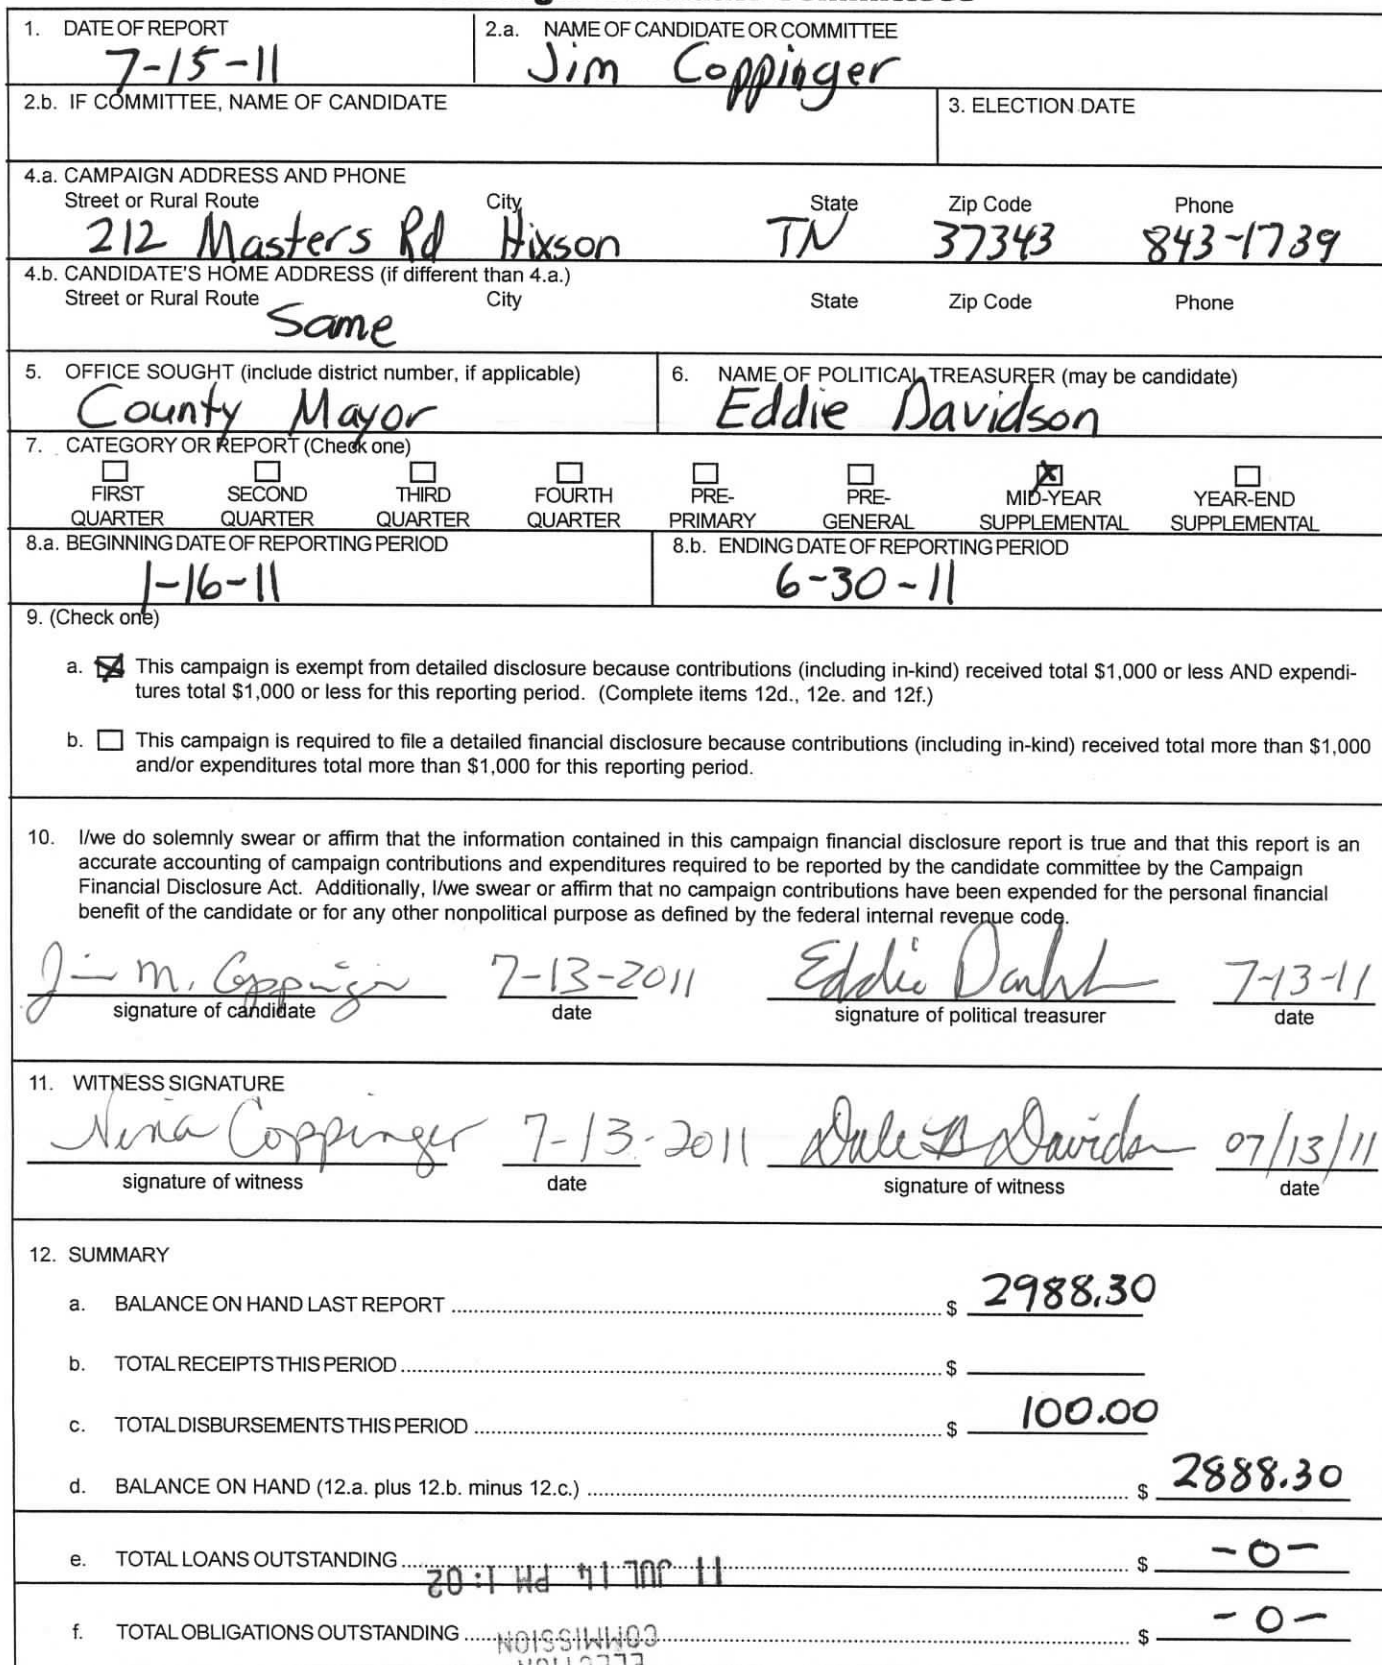 1. DATE OF REPORT
7-15-11
2.a. NAME OF CANDIDATE OR COMMITTEE
Jim Coppinger
2.b. IF COMMITTEE, NAME OF CANDIDATE
3. ELECTION DATE
4.a. CAMPAIGN ADDRESS AND PHONE
Street or Rural Route City State Zip Code Phone
212 Masters Rd Hixson TN 37343 843-1739
4.b. CANDIDATE'S HOME ADDRESS (if different than 4.a.)
Street or Rural Route City State Zip Code Phone
Same
5. OFFICE SOUGHT (include district number, if applicable)
County Mayor
6. NAME OF POLITICAL TREASURER (may be candidate)
Eddie Davidson
7. CATEGORY OR REPORT (Check one)
FIRST QUARTER
SECOND QUARTER
THIRD QUARTER
FOURTH QUARTER
PRE-PRIMARY
PRE-GENERAL
X MID-YEAR SUPPLEMENTAL
YEAR-END SUPPLEMENTAL
8.a. BEGINNING DATE OF REPORTING PERIOD
1-16-11
8.b. ENDING DATE OF REPORTING PERIOD
6-30-11
9. (Check one)
a. X This campaign is exempt from detailed disclosure because contributions (including in-kind) received total $1,000 or less AND expendi-
tures total $1,000 or less for this reporting period. (Complete items 12d., 12e. and 12f.)
b. This campaign is required to file a detailed financial disclosure because contributions (including in-kind) received total more than $1,000
and/or expenditures total more than $1,000 for this reporting period.
10. I/we do solemnly swear or affirm that the information contained in this campaign financial disclosure report is true and that this report is an
accurate accounting of campaign contributions and expenditures required to be reported by the candidate committee by the Campaign
Financial Disclosure Act. Additionally, I/we swear or affirm that no campaign contributions have been expended for the personal financial
benefit of the candidate or for any other nonpolitical purpose as defined by the federal internal revenue code.
Jim M. Coppinger 7-13-2011 Eddie 7-13-11
signature of candidate date signature of political treasurer date
11. WITNESS SIGNATURE
Nina Coppinger 7-13-2011 Dale B Davidson 07/13/11
signature of witness date signature of witness date
12. SUMMARY
a. BALANCE ON HAND LAST REPORT $ 2988.30
b. TOTAL RECEIPTS THIS PERIOD $
c. TOTAL DISBURSEMENTS THIS PERIOD $ 100.00
d. BALANCE ON HAND (12.a. plus 12.b. minus 12.c.) $ 2888.30
e. TOTAL LOANS OUTSTANDING $ -0-
11 JUL 14 PM 1:02
f. TOTAL OBLIGATIONS OUTSTANDING $ -0-
COMMISSION
ELECTION